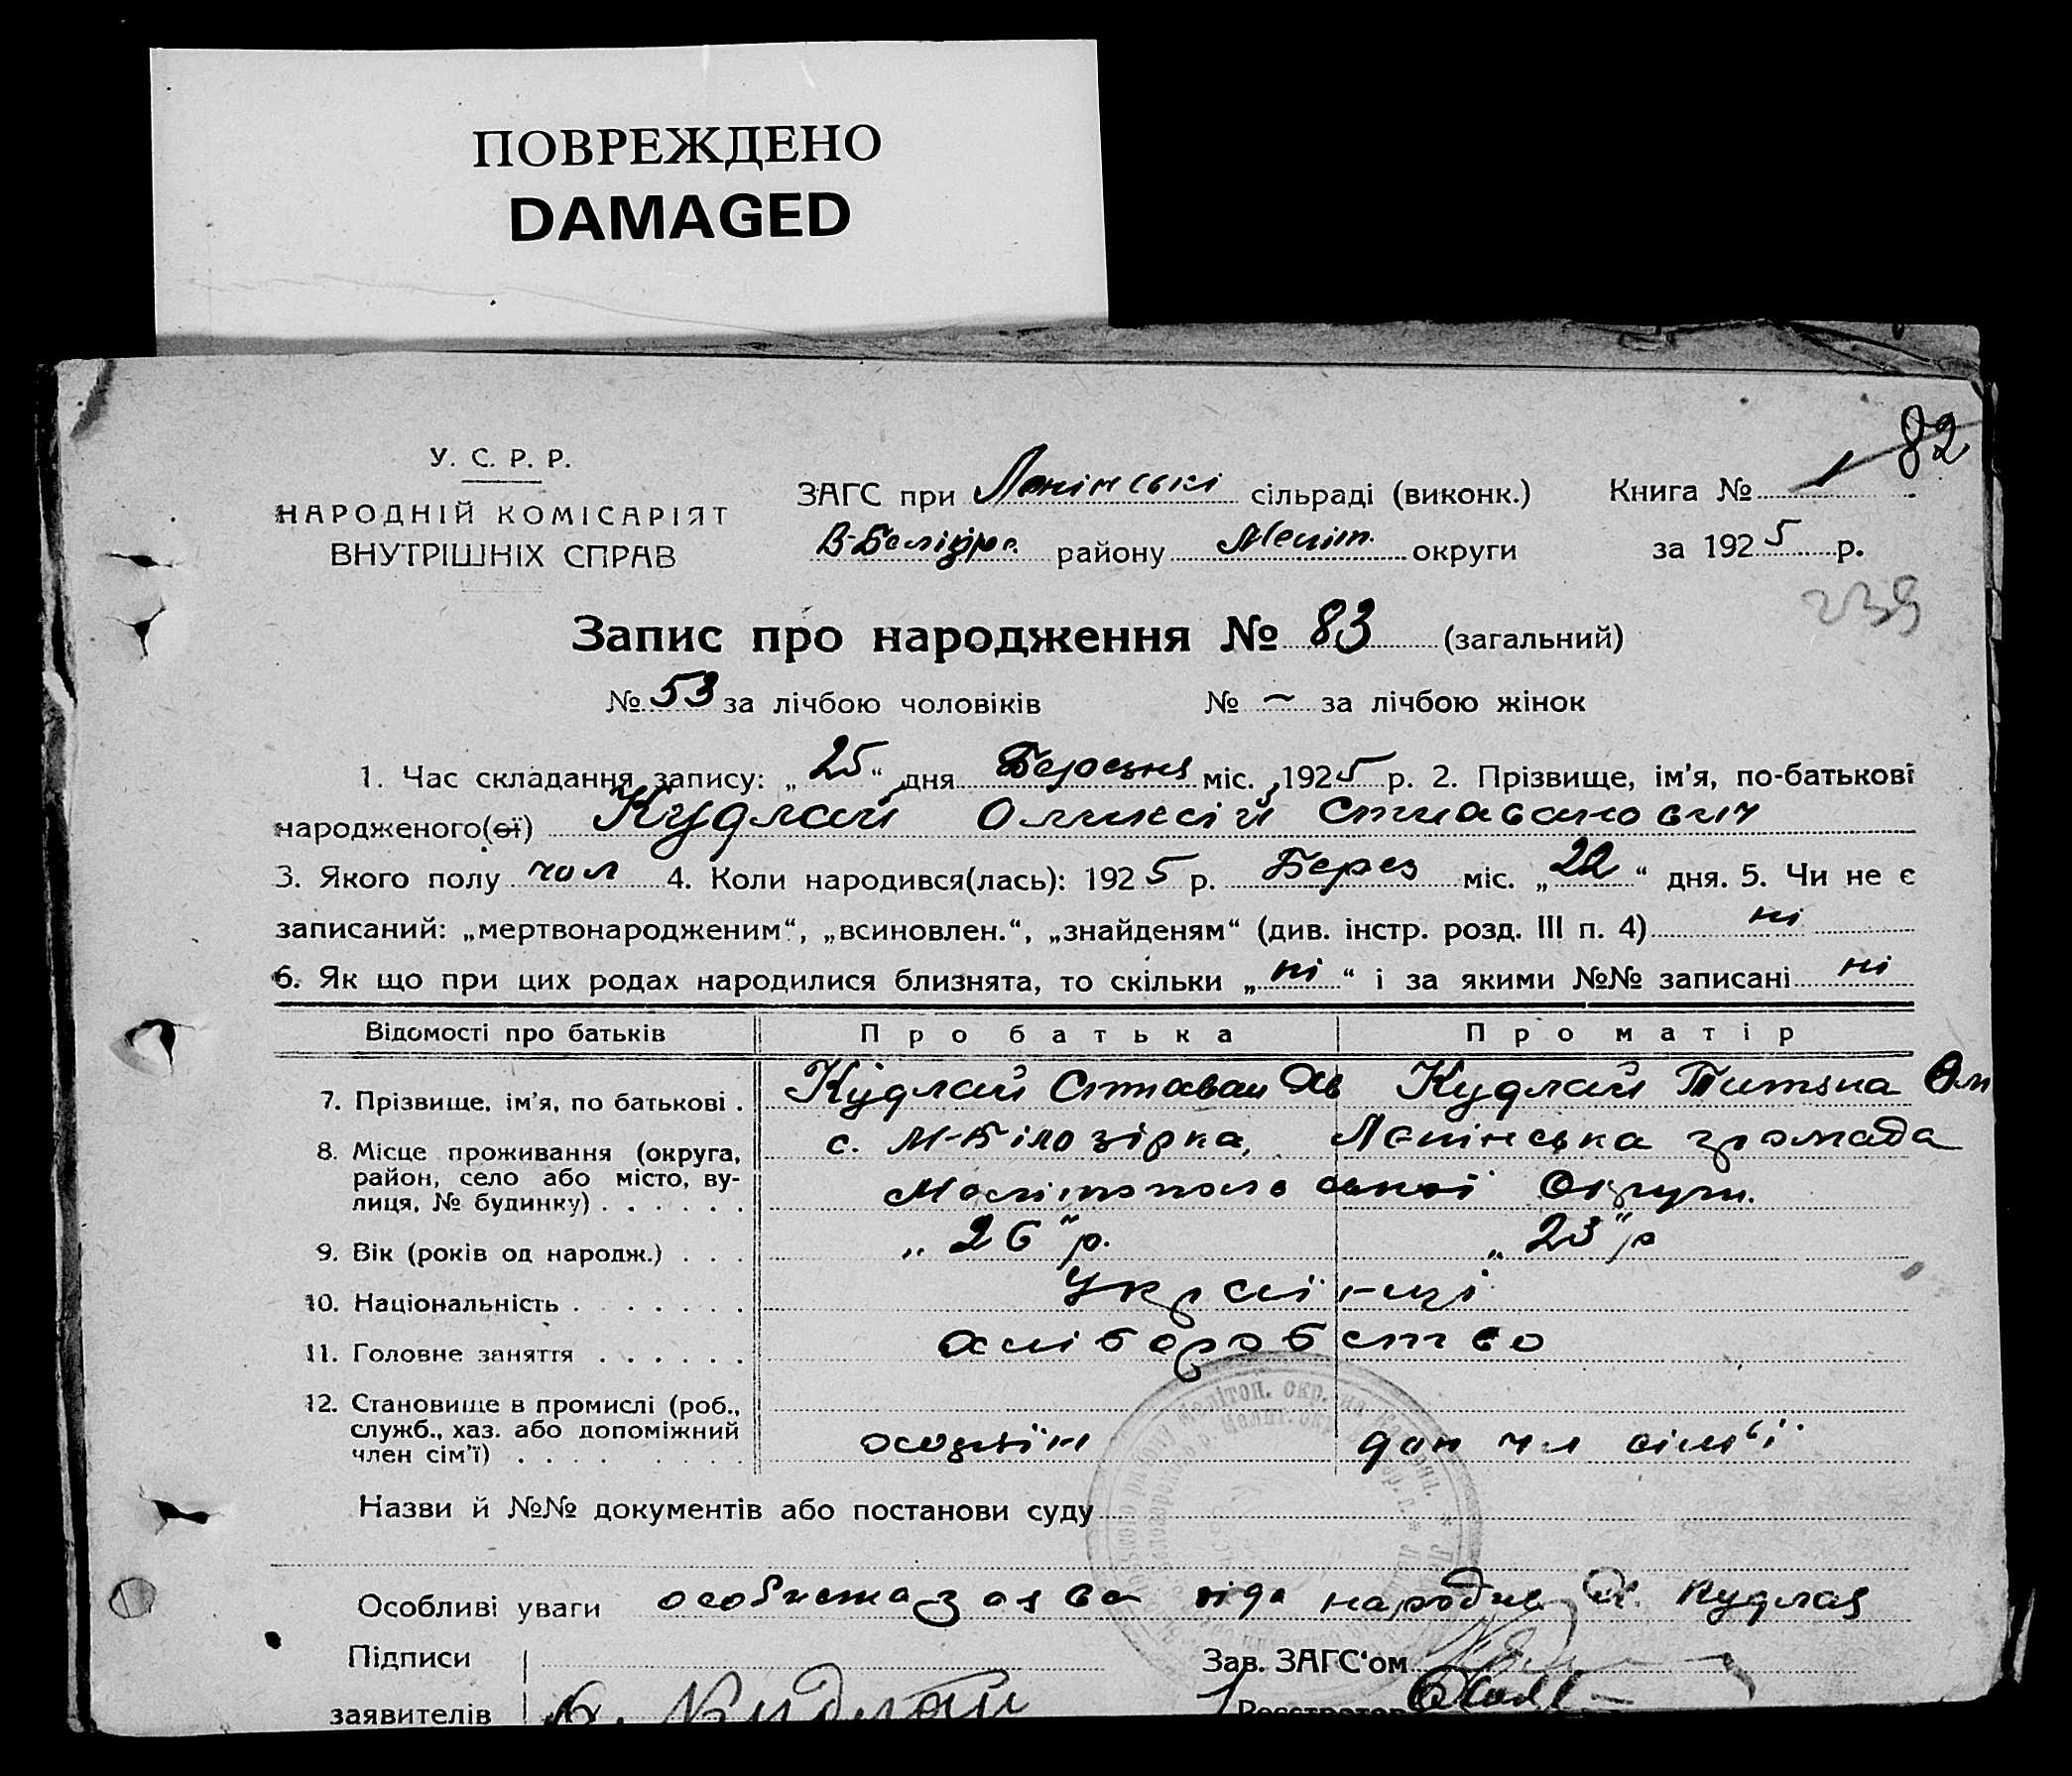 ПОВРЕЖДЕНО
DAMAGED
82
У. С. Р. Р.
НАРОДНІЙ КОМІСАРІЯТ
ВНУТРІШНІХ СПРАВ
ЗАГС при Ленінські сільраді (виконк.)
В-Білозір. району Меліт. округи
Книга № 1
за 1925 р.
239
Запис про народження № 83 (загальний)
№ 53 за лічбою чоловіків № – за лічбою жінок
1. Час складання запису: „25“ дня Березня міс. 1925 р. 2. Прізвище, ім'я, по-батькові
народженого(ої) Кудлай Оликсій Стиаванович
3. Якого полу чол 4. Коли народився(лась): 1925 р. Берез міс. „22“ дня. 5. Чи не є
записаний: „мертвонародженим“, „всиновлен.“, „знайденям“ (див. інстр. розд. III п. 4) ні
6. Як що при цих родах народилися близнята, то скільки „ні“ і за якими №№ записані ні
Відомості про батьків Про батька Про матір
7. Прізвище, ім'я, по батькові . Кудлай Кудлай Титяна Ол
8. Місце проживання (округа, район, село або місто, вулиця, № будинку) . . . . . . с. М-Білозірка, Ленінська громада
Мелітопольської Округи.
9. Вік (років од народж.) . . . „26“ р. „23“ р
10. Національність . . . . . . . Українці
11. Головне заняття . . . . . . хліборобство
12. Становище в промислі (роб., служб., хаз. або допоміжний член сім'ї) . . . . . . . . . хазяїн доп чл сімї
Назви й №№ документів або постанови суду
Особливі уваги особиста заява народив Кудлая
Підписи
заявителів Кудлай
Зав. ЗАГС'ом
Реєстратор